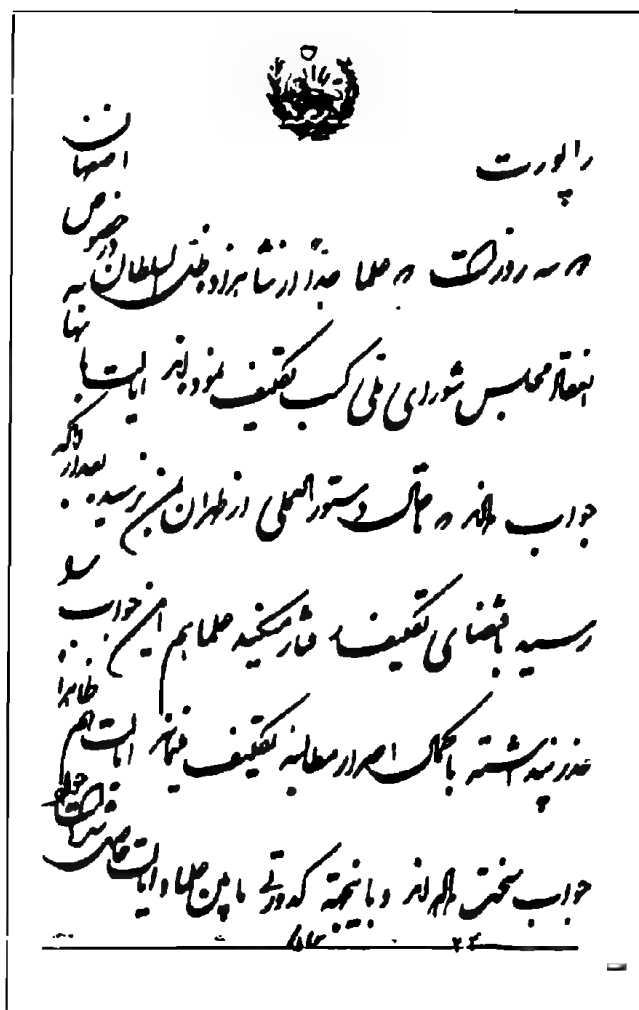 راپورت اصفهان
سه روز است علما جداً از شاهزاده ظل السلطان در خصوص
انعقاد مجلس شورای ملی کسب تکلیف نموده‌اند ایالت بآنها
جواب داده‌اند که تا حال دستورالعملی از طهران بمن نرسیده بعد از آنکه
رسید باقتضای تکلیف رفتار میکنید علما هم این جواب را
عذر پنداشته با کمال اصرار مطالبه تکلیف مینمایند ایالت هم ظاهراً
جواب سخت داده‌اند و باینجهة کدورتی مابین علما و ایالت حاصل شده است